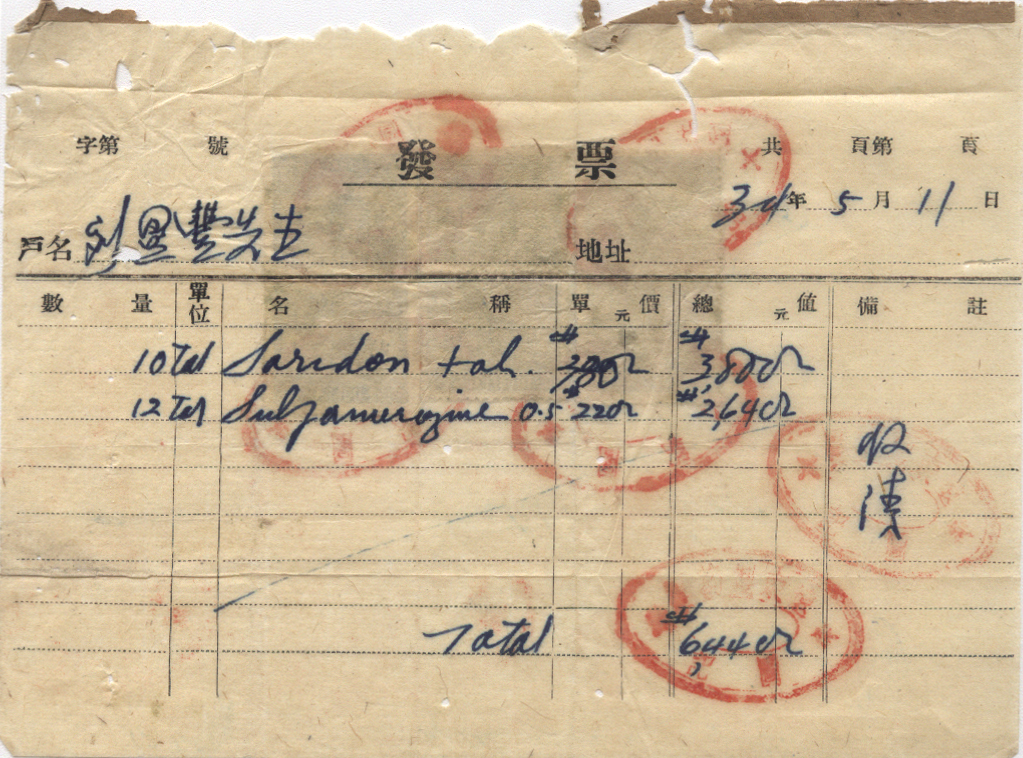 字第 號 發票 共 頁第 頁
34年5月11日
戶名 劉恩豐先生 地址
數量 單位 名稱 單價 元 總值 元 備註
10 Tal Saridon tab. 380 3,800
12 Tal 0.5 220 2,640
收
陳
Total 6,440